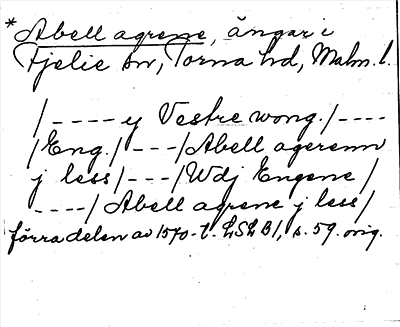 *Abell agrene, ängar i
Fjelie sn, Torna hd, Malm. l.
/----y Vestre wong./----
/Eng./---/Abell agerenn
j less/---/Wdj Engene/
----/Abell agrene j less/
förra delen av 1570-t. LSLB1, s. 59. orig.